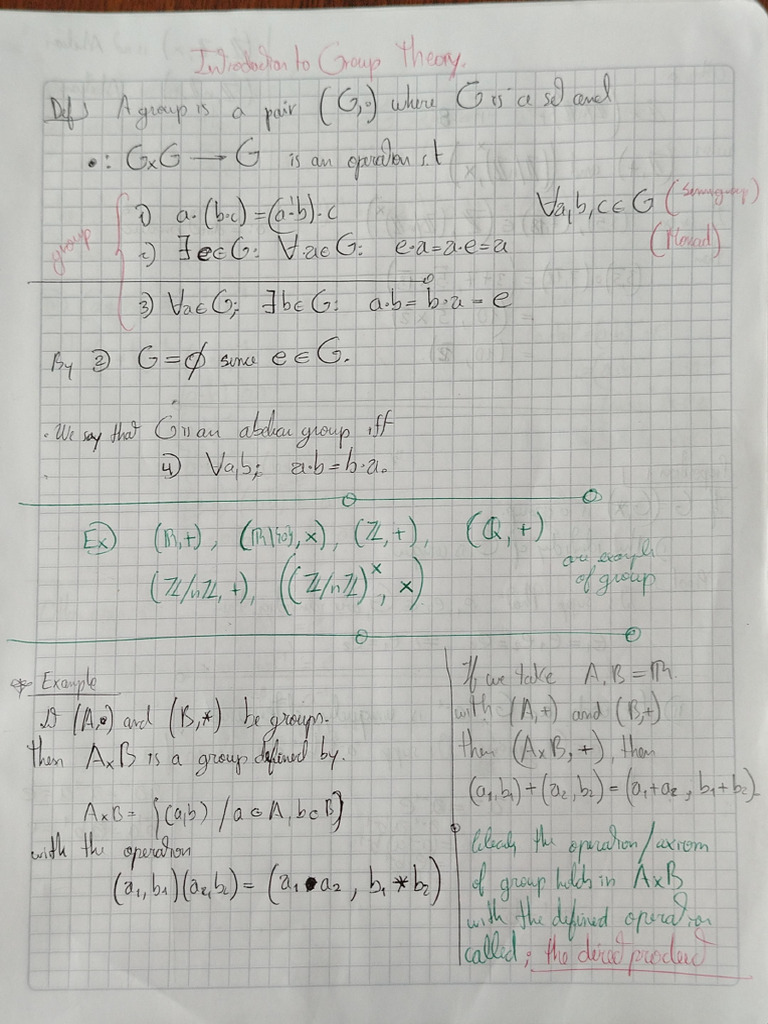 Introduction to Group Theory.
Def) A group is a pair (G,·) where G is a set and
• : G×G → G is an operation s.t
group
1) a·(b·c)=(a·b)·c ∀a,b,c∈G (Semigroup)
2) ∃e∈G: ∀a∈G: e·a=a·e=a (Monoid)
3) ∀a∈G; ∃b∈G: a·b=b·a=e
By 2) G=∅ since e∈G.
· We say that G is an abelian group iff
4) ∀a,b; a·b=b·a.
Ex) (ℝ,+), (ℝ\{0},×), (ℤ,+), (ℚ,+)
(ℤ/nℤ,+), ((ℤ/nℤ)^×, ×)
are example
of group
Example
(A,•) and (B,*) be groups.
then A×B is a group defined by.
A×B = {(a,b) / a∈A, b∈B}
with the operation
(a₁,b₁)(a₂,b₂) = (a₁•a₂, b₁*b₂)
If we take A,B=ℝ.
with (A,+) and (B,+)
then (A×B,+), then
(a₁,b₁)+(a₂,b₂)=(a₁+a₂,b₁+b₂)
Clearly the operation/axiom
of group holds in A×B
with the defined operation
called; the direct product